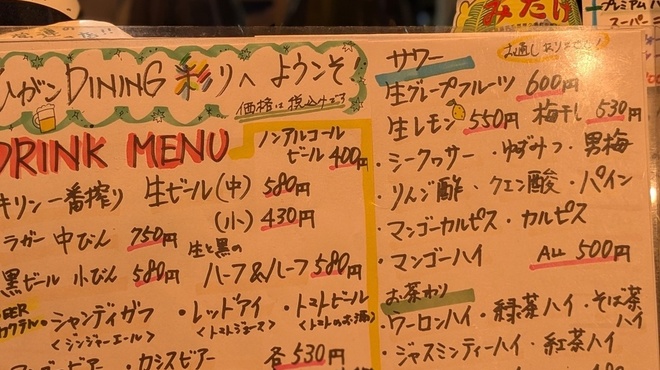 みたけ
プレミアム
スーパー
DINING 彩りへ ようこそ!
価格は税込みです
DRINK MENU
ノンアルコール
ビール 400円
キリン一番搾り 生ビール(中) 580円
(小) 430円
ラガー 中びん 750円
生と黒の
黒ビール 小びん 580円 ハーフ&ハーフ 580円
BEER
カクテル・シャンディガフ ・レッドアイ ・トマトビール
<ジンジャーエール> <トマトジュース> <トマトのお酒>
カシスビアー 各530円
サワー お通しありません!
生グレープフルーツ 600円
生レモン 550円 梅干し 530円
・シークヮサー ・ゆずみつ ・男梅
・りんご酢 ・クエン酸 ・パイン
・マンゴーカルピス ・カルピス
・マンゴーハイ ALL 500円
お茶わり
・ウーロンハイ ・緑茶ハイ ・そば茶ハイ
・ジャスミンティーハイ ・紅茶ハイ